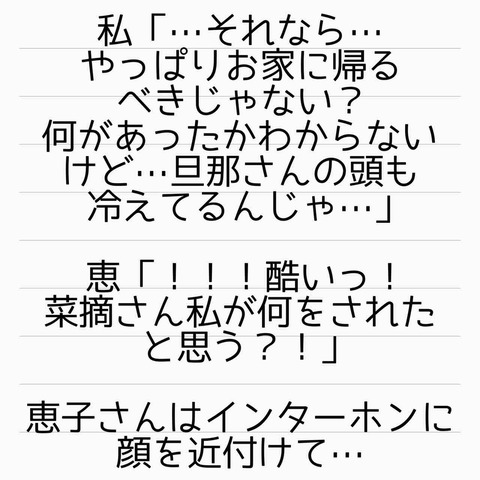 私「…それなら…
やっぱりお家に帰る
べきじゃない？
何があったかわからない
けど…旦那さんの頭も
冷えてるんじゃ…」
恵「！！！酷いっ！
菜摘さん私が何をされた
と思う？！」
恵子さんはインターホンに
顔を近付けて…